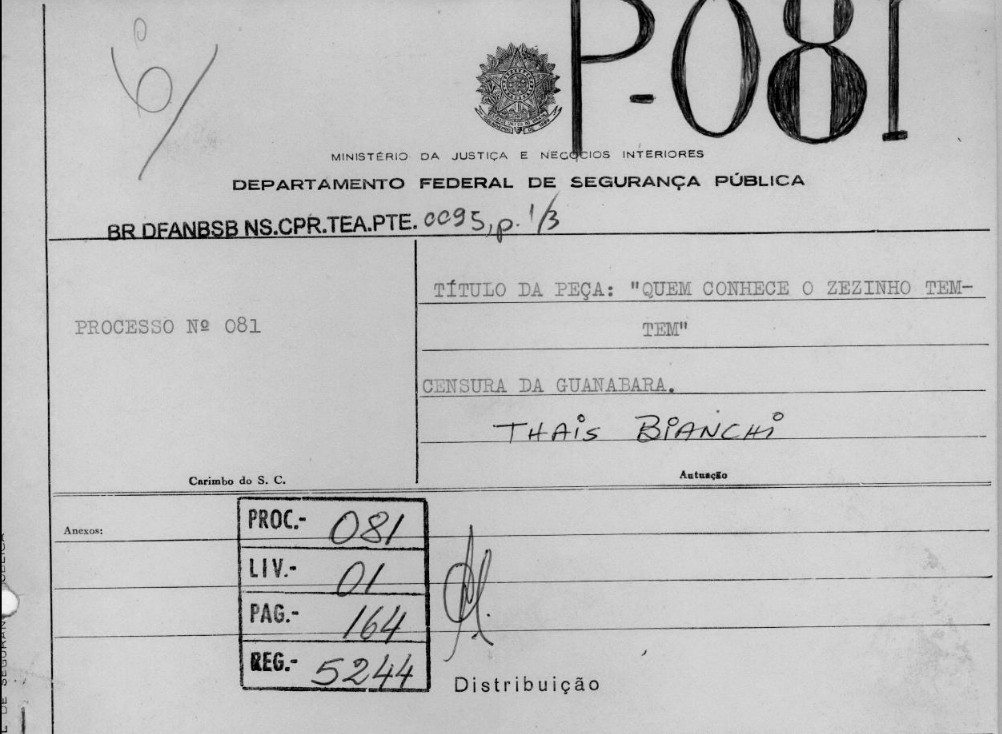 6/
P-081
MINISTÉRIO DA JUSTIÇA E NEGÓCIOS INTERIORES
DEPARTAMENTO FEDERAL DE SEGURANÇA PÚBLICA
BR DFANBSB NS.CPR.TEA.PTE. 0095, p. 1/3
PROCESSO Nº 081
TÍTULO DA PEÇA: "QUEM CONHECE O ZEZINHO TEM-
TEM"
CENSURA DA GUANABARA.
THAIS BIANCHI
Carimbo do S. C.
Autuação
Anexos:
PROC.- 081
LIV.- 01
PAG.- 164
REG.- 5244
Distribuição